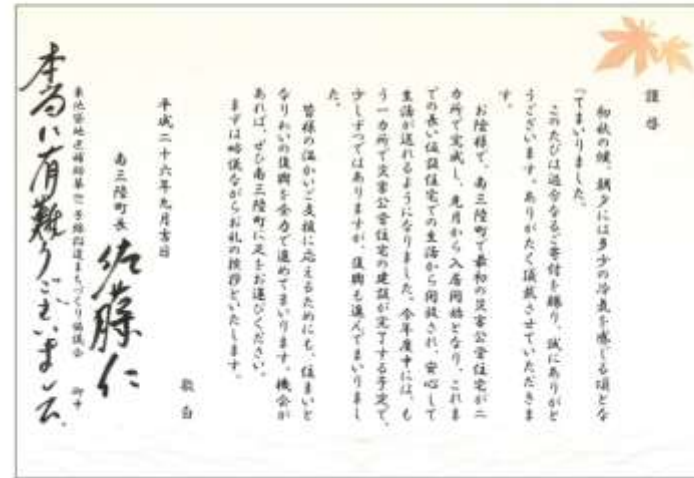 謹啓
初秋の候、朝夕には多少の冷気を感じる頃とな
ってまいりました。
このたびは過分なるご寄付を賜り、誠にありがと
うございます。ありがたく頂戴させていただきま
す。
お陰様で、南三陸町で最初の災害公営住宅が二
カ所で完成し、先月から入居開始となり、これま
での長い仮設住宅での生活から開放され、安心して
生活が送れるようになりました。今年度中には、も
う一カ所で災害公営住宅の建設が完了する予定で、
少しずつではありますが、復興も進んでまいりまし
た。
皆様の温かいご支援に応えるためにも、住まいと
なりわいの復興を全力で進めてまいります。機会が
あれば、ぜひ南三陸町に足をお運びください。
まずは略儀ながらお礼の挨拶といたします。
敬白
平成二十六年九月吉日
南三陸町長 佐藤仁
まちづくり協議会 御中
本当に有難うございました。